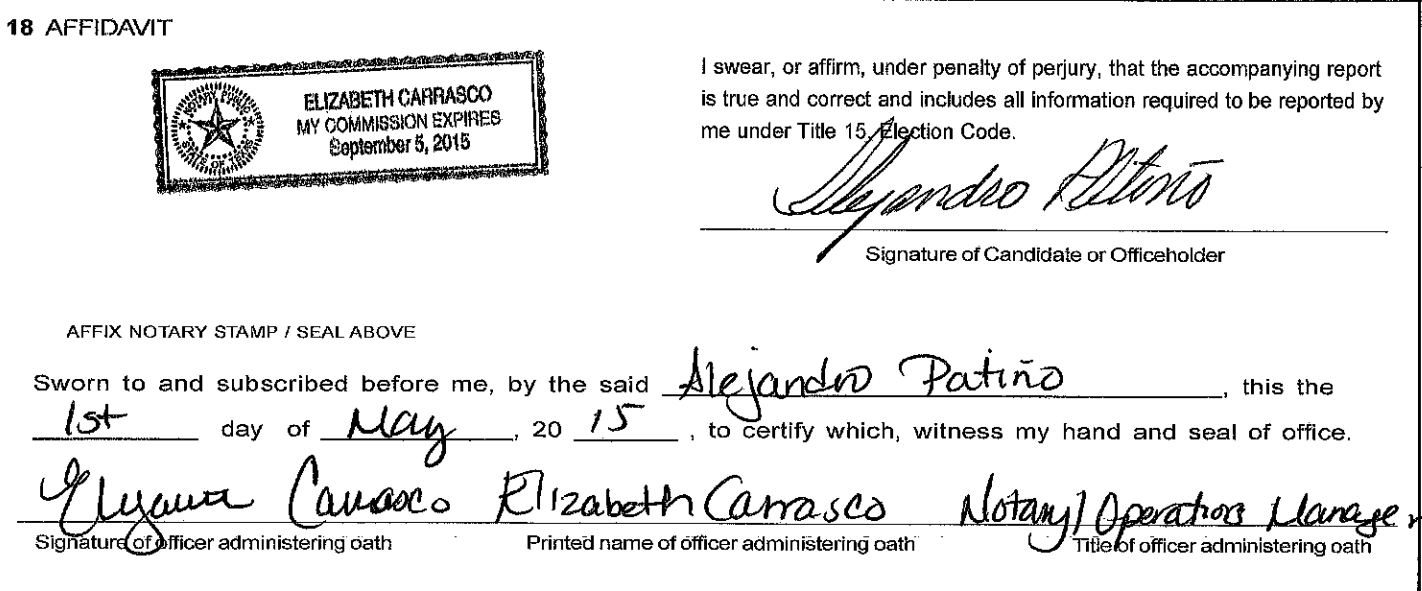 18 AFFIDAVIT
NOTARY PUBLIC
STATE OF TEXAS
ELIZABETH CARRASCO
MY COMMISSION EXPIRES
September 5, 2015
I swear, or affirm, under penalty of perjury, that the accompanying report
is true and correct and includes all information required to be reported by
me under Title 15, Election Code.
Alejandro Patiño
Signature of Candidate or Officeholder
AFFIX NOTARY STAMP / SEAL ABOVE
Sworn to and subscribed before me, by the said Alejandro Patiño, this the
1st day of May, 20 15, to certify which, witness my hand and seal of office.
Carrasco Elizabeth Carrasco Notary/Operations Manager
Signature of officer administering oath Printed name of officer administering oath Title of officer administering oath